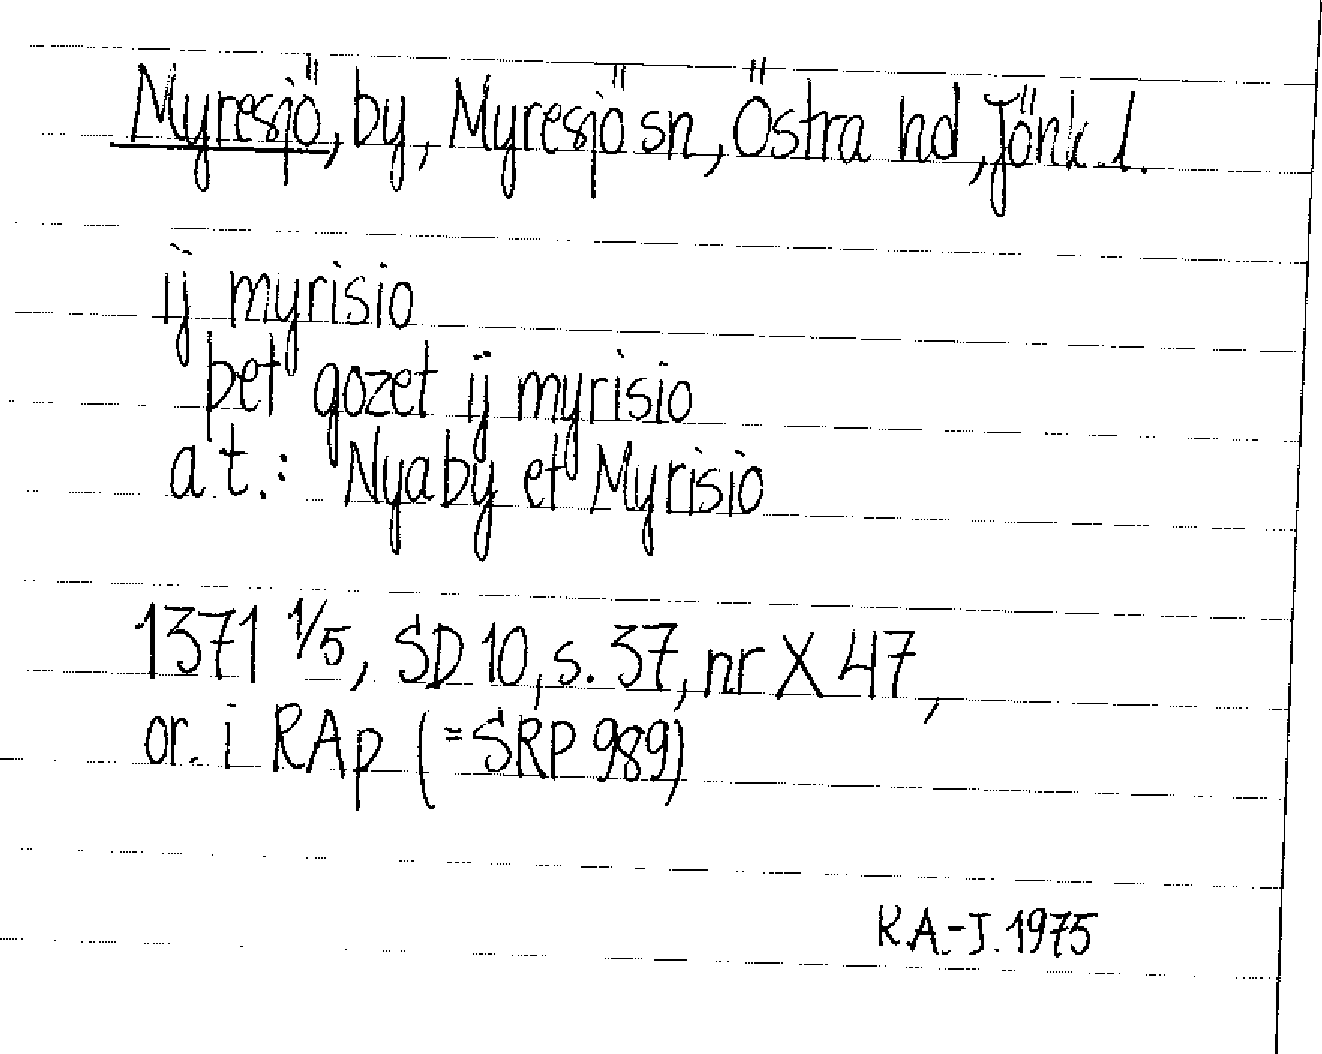 Myresjö, by, Myresjö sn, Östra hd, Jönk l.
ij myrisio
þet gozet ij myrisio
a.t.: Nyaby et Myrisio
1371 1/5, SD 10, s. 37, nr X 47,
or. i RAp (=SRP 989)
R.A.-J. 1975